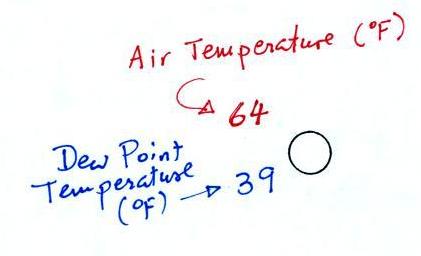 Air Temperature (°F)
64
Dew Point
Temperature
(°F) → 39